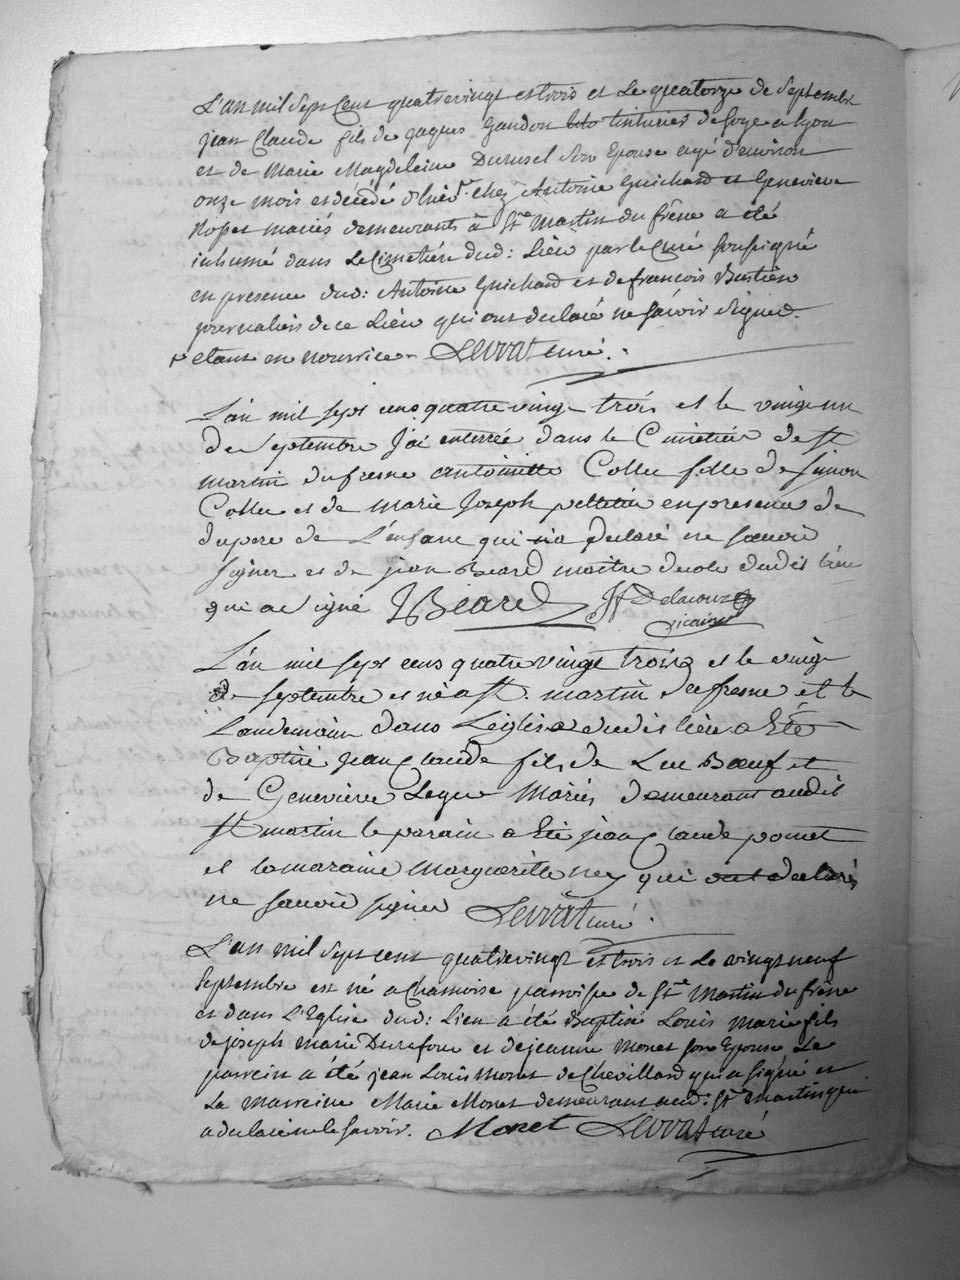 L'an mil sept Cent quatrevingt et trois et Le quatorze de Septembre
jean Claude fils de jaques Gandon tinturier de soye a lyon
et de Marie Magdeleine Durusel son Epouse agé d'environ
onze mois est décédé d'hier chez Antoine Guichard et Genevieve
mariés demeurants à St Martin du frêne a été
inhumé dans Le Cimetière dud: Lieu par le Curé soussigné
en presence dud: Antoine Guichard et de françois Bustien
de ce Lieu qui ont declaré ne sçavoir signer.
etant en nourrice Levrat curé.
L'an mil sept cens quatre vingt trois et le vingt un
de septembre J'ai enterrée dans le Cimetière de St
martin du fresne antoinette Collet fille de simon
Collet et de marie Joseph pelletin en presence de
du pere de L'enfant qui n'a declaré ne scavoir
signer et de jean Beard maitre decole dudit lieu
qui a signé JBeard Delacour
vicaire
L'an mil sept cens quatre vingt trois et le vingt
de septembre est né a St. martin du fresne et le
Landemain dans L'eglise dudit lieu a Eté
Baptisé jean Claude fils de Luc Bœuf et
de Genevieve Mariés demeurant audit
St martin le parain a Eté jean Claude pomet
et la maraine marguerite ney qui ont declarés
ne scavoir signer Levrat curé.
L'an mil sept cent quatrevingt et trois et Le vingt neuf
Septembre est né a Chamoise parroisse de St Martin du frêne
et dans L'Eglise dud: Lieu a été Baptisé Louis Marie fils
de joseph Marie Durafour et de jeanne Monet son Epouse Le
parrein a été jean Louis Monet de Chevillard qui a signé et
La Marreine Marie Monet demeurant aud: St Martin qui
a declaré ne le sçavoir. Monet Levrat curé